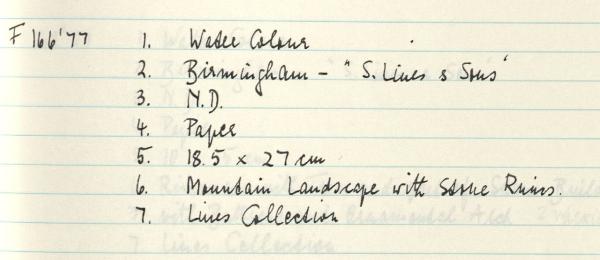 F 166'77 1. Water Colour
2. Birmingham - "S. Lines & Sons"
3. N.D.
4. Paper
5. 18.5 x 27 cm
6. Mountain Landscape with Stone Ruins.
7. Lines Collection